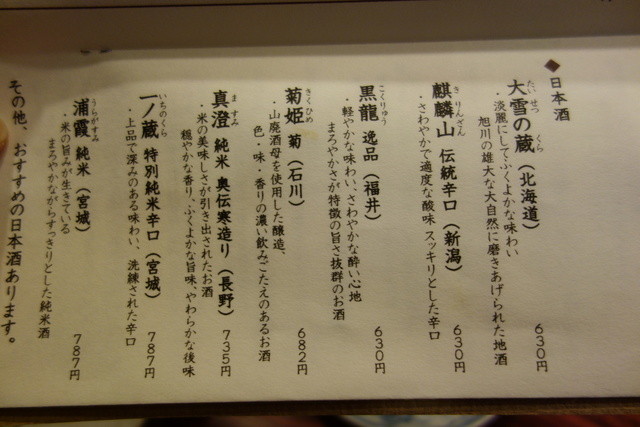 ◆日本酒
大雪の蔵（北海道） 630円
・淡麗にしてふくよかな味わい
旭川の雄大な大自然に磨きあげられた地酒
麒麟山 伝統辛口（新潟） 630円
・さわやかで適度な酸味 スッキリとした辛口
黒龍 逸品（福井） 630円
・軽やかな味わい、さわやかな酔い心地
まろやかさが特徴の旨さ抜群のお酒
菊姫 菊（石川） 682円
・山廃酒母を使用した醸造、
色・味・香りの濃い飲みごたえのあるお酒
真澄 純米 奥伝寒造り（長野） 735円
・米の美味しさが引き出されたお酒
穏やかな香り、ふくよかな旨味、やわらかな後味
一ノ蔵 特別純米辛口（宮城） 787円
・上品で深みのある味わい、洗練された辛口
浦霞 純米（宮城） 787円
・米の旨みが生きている
まろやかながらすっきりとした純米酒
その他、おすすめの日本酒あります。